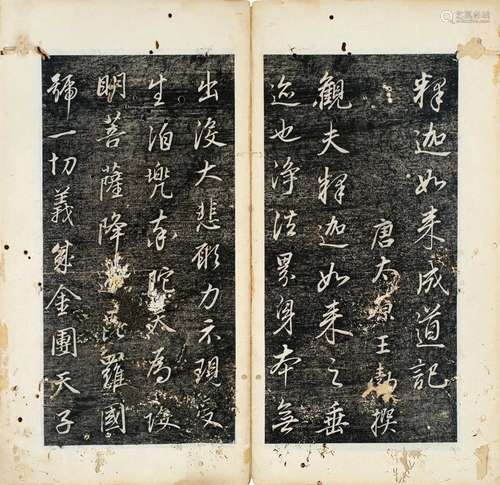 釋迦如来成道記
唐太原王勃撰
觀夫釋迦如来之垂
迹也淨法界身本無
出沒大悲願力示現受
生洎兜率陀天為護
明菩薩降迦毘羅國
號一切義成金團天子